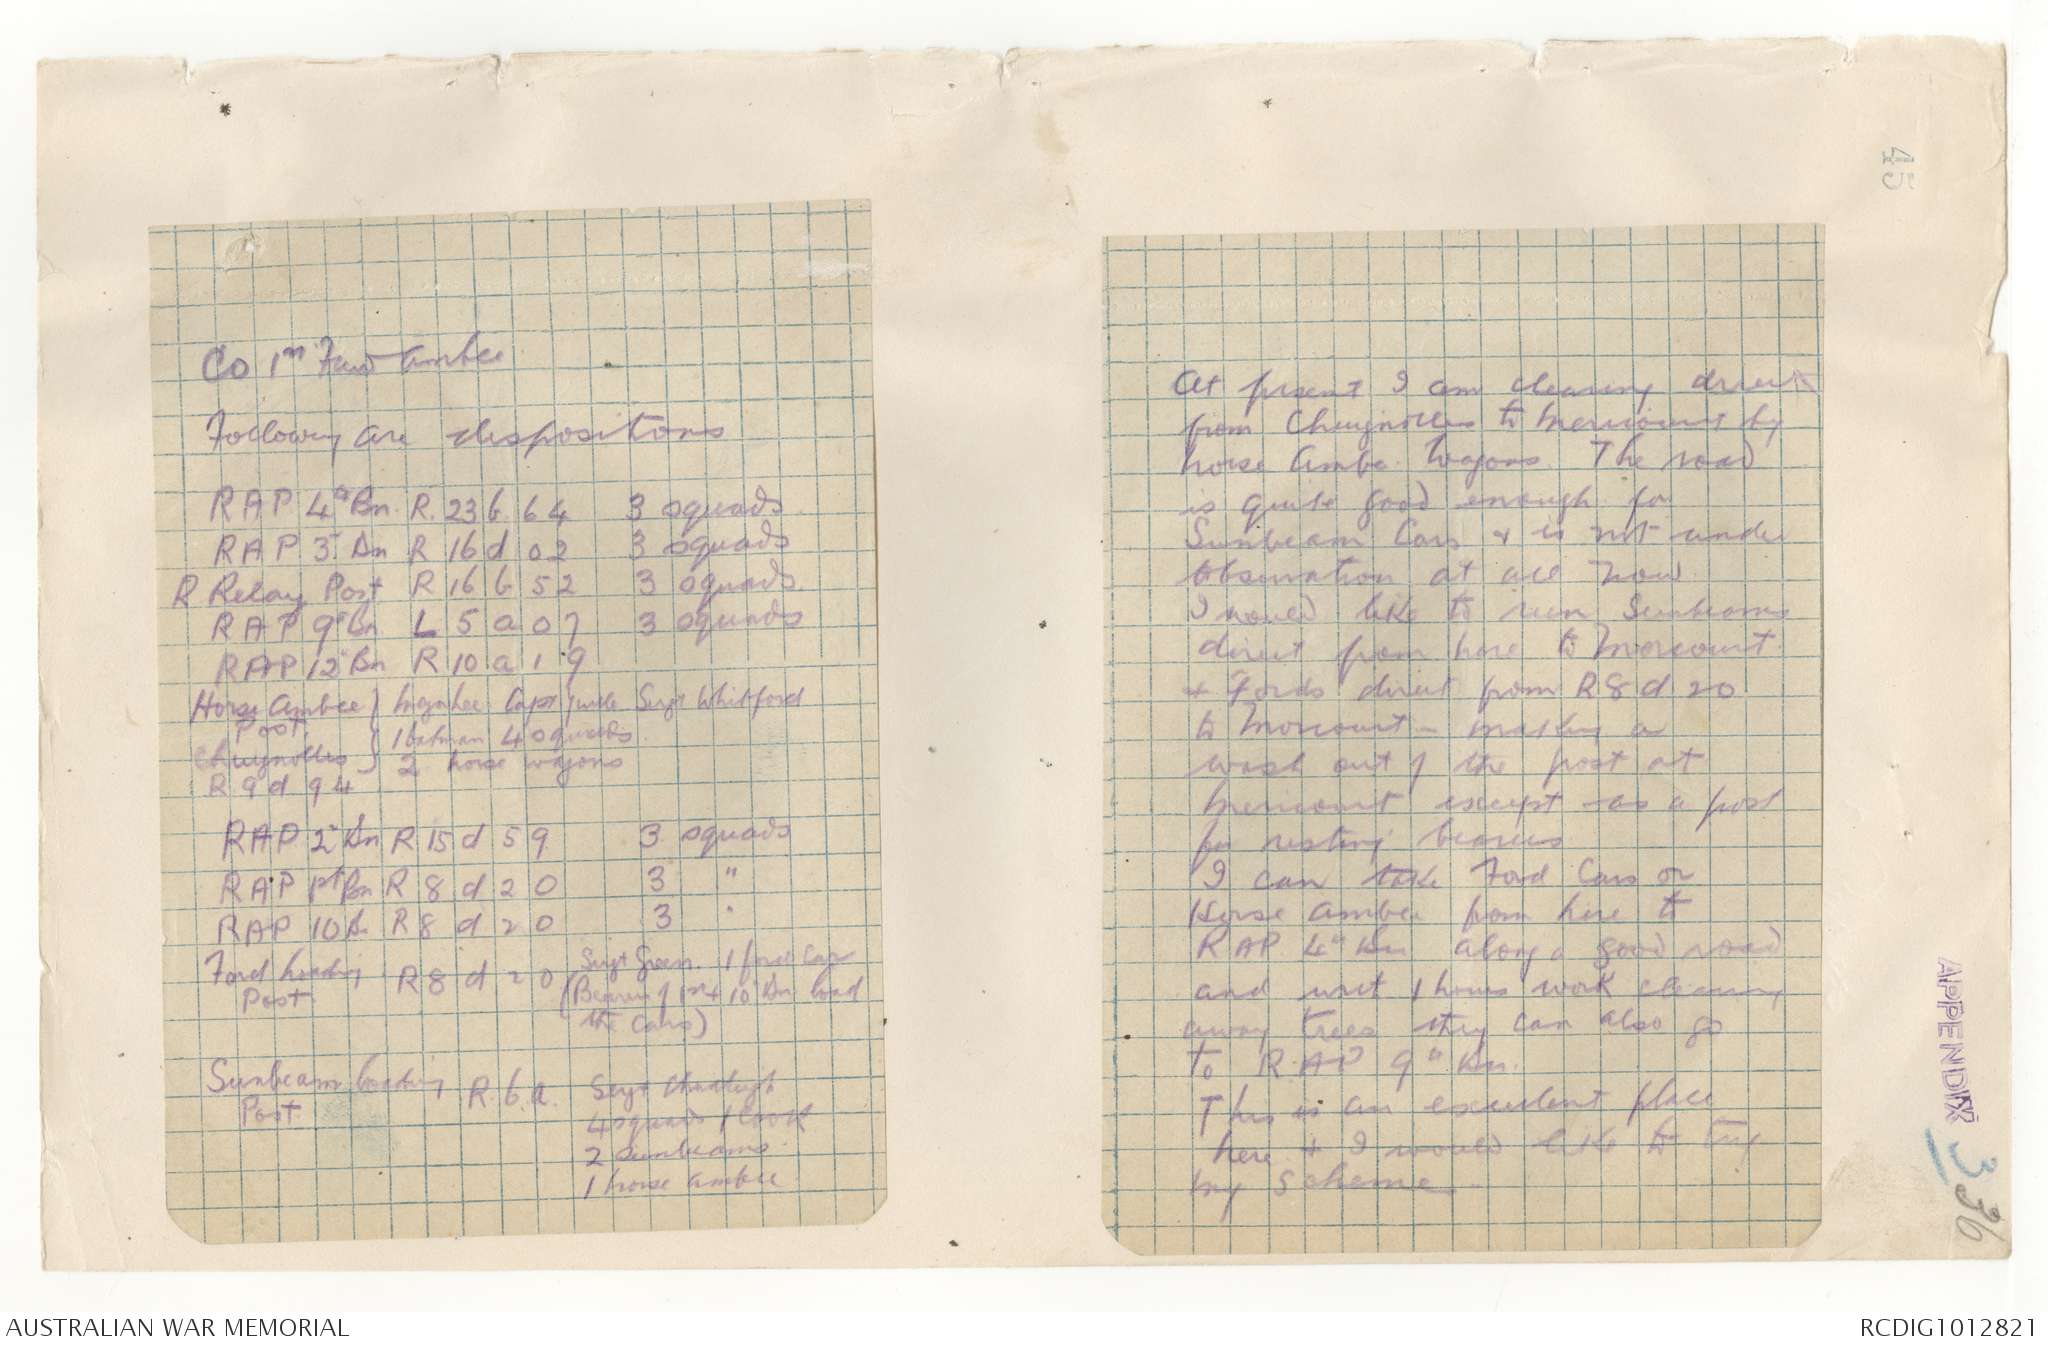 CO 1st Fld Ambce
Following are dispositions
RAP 4th Bn. R. 23 b. 64 3 squads.
RAP 3rd Bn R 16 d 02 3 squads
R Relay Post R 16 b 52 3 squads.
RAP 9th Bn L 5 a 07 3 squads
RAP 12th Bn R 10 a 19
Horse Ambce } Capt Sergt Whitford
Post } 1 batman 4 squads.
Chuignolles } 2 horse wagons
R 9 d 94
RAP 2nd Bn R 15 d 59 3 squads
RAP 1st Bn R 8 d 20 3 "
RAP 10 Bn R 8 d 20 3 "
Ford loading R 8 d 20 Sergt Green. 1 ford car
Post (Bearers of 1st & 10th Bn load
the cars)
Sunbeam loading R. 6. a. Sergt
Post 4 squads 1 cook
2 Sunbeams.
1 horse ambce.
At present I am clearing direct
from Chuignolles to Mericourt by
horse Ambce. Wagons. The road
is quite good enough for
Sunbeam Cars & is not under
observation at all now.
I would like to run Sunbeams
direct from here to Morcourt.
& Fords direct from R 8 d 20
to Morcourt - making a
wash out of the post at
Mericourt except as a post
for resting bearers
I can take Ford Cars or
Horse Ambce from here to
RAP. 4th Bn along a good road
and with 1 hours work clearing
away trees they can also go
to R.AP 9th Bn.
This is an excellent place
here & I would like to try
my scheme. -
45
APPENDIX
3
36
AUSTRALIAN WAR MEMORIAL
RCDIG1012821